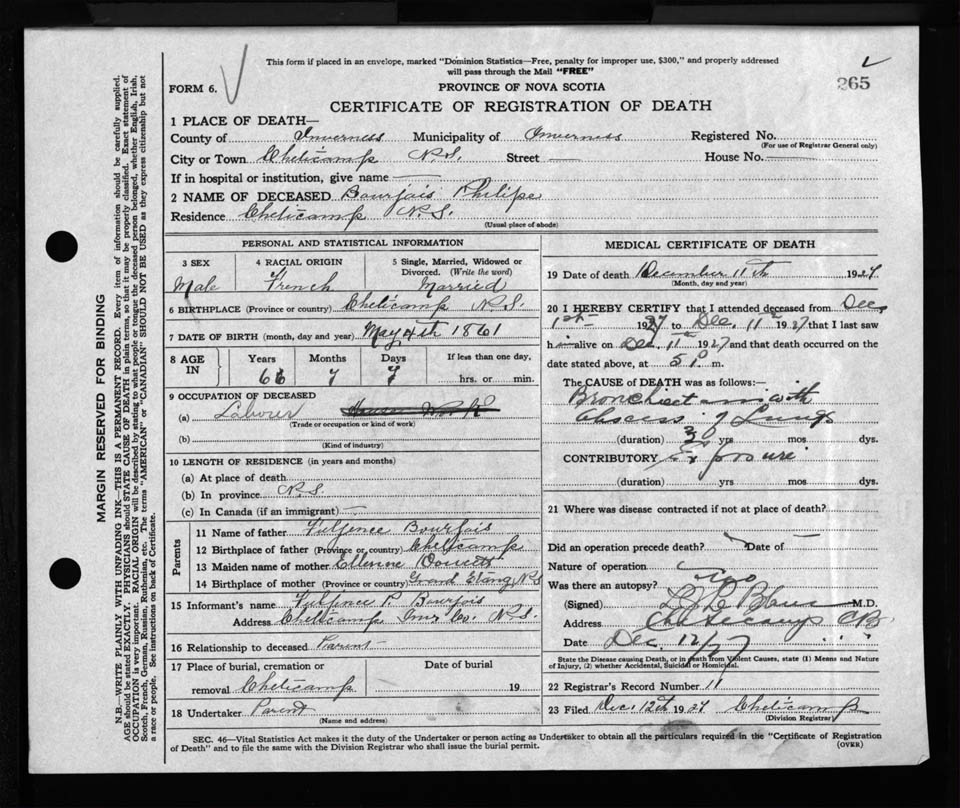 This form if placed in an envelope, marked "Dominion Statistics—Free, penalty for improper use, $300," and properly addressed
will pass through the Mail "FREE"
FORM 6.
PROVINCE OF NOVA SCOTIA
265
CERTIFICATE OF REGISTRATION OF DEATH
1 PLACE OF DEATH—
County of Inverness Municipality of Inverness Registered No.
(For use of Registrar General only)
City or Town Cheticamp N.S. Street — House No. —
If in hospital or institution, give name —
2 NAME OF DECEASED Bourjois Philipe
Residence Cheticamp N.S.
(Usual place of abode)
PERSONAL AND STATISTICAL INFORMATION
3 SEX 4 RACIAL ORIGIN 5 Single, Married, Widowed or
Divorced. (Write the word)
Male French Married
6 BIRTHPLACE (Province or country) Cheticamp N.S.
7 DATE OF BIRTH (month, day and year) May 4th 1861
8 AGE IN Years Months Days If less than one day,
66 7 7 hrs. or min.
9 OCCUPATION OF DECEASED
(a) Labourer
(Trade or occupation or kind of work)
(b)
(Kind of industry)
10 LENGTH OF RESIDENCE (in years and months)
(a) At place of death
(b) In province N.S.
(c) In Canada (if an immigrant) —
Parents
11 Name of father Fulgence Bourjois
12 Birthplace of father (Province or country) Cheticamp
13 Maiden name of mother Doucett
14 Birthplace of mother (Province or country) Grand Etang N.S
15 Informant's name Fulgence P. Bourjois
Address Cheticamp Inv. Co. N.S.
16 Relationship to deceased Parent
17 Place of burial, cremation or Date of burial
removal Cheticamp 19
18 Undertaker Parent
(Name and address)
MEDICAL CERTIFICATE OF DEATH
19 Date of death December 11th 1927
(Month, day and year)
20 I HEREBY CERTIFY that I attended deceased from Dec,
1st 1927 to Dec. 11th 1927 that I last saw
h im alive on Dec. 11th 1927 and that death occurred on the
date stated above, at 5 P. m.
The CAUSE of DEATH was as follows:
Bronchiectasis with
abscess of Lungs
(duration) 3 yrs mos dys.
CONTRIBUTORY Exposure
(duration) yrs mos dys.
21 Where was disease contracted if not at place of death?
Did an operation precede death? Date of —
Nature of operation
Was there an autopsy? no
(Signed) M.D.
Address Cheticamp CB
Date Dec. 12/27
State the Disease causing Death, or in death from Violent Causes, state (1) Means and Nature
of Injury, (2) whether Accidental, Suicidal or Homicidal.
22 Registrar's Record Number 11
23 Filed Dec. 12th 1927 Cheticamp
(Division Registrar)
SEC. 46—Vital Statistics Act makes it the duty of the Undertaker or person acting as Undertaker to obtain all the particulars required in the "Certificate of Registration
of Death" and to file the same with the Division Registrar who shall issue the burial permit.
(OVER)
MARGIN RESERVED FOR BINDING
N.B.—WRITE PLAINLY WITH UNFADING INK—THIS IS A PERMANENT RECORD. Every item of information should be carefully supplied.
AGE should be stated EXACTLY. PHYSICIANS should STATE CAUSE OF DEATH in plain terms, so that it may be properly classified. Exact statement of
OCCUPATION is very important. RACIAL ORIGIN will be described by stating to what people or tongue the deceased person belonged, whether English, Irish,
Scotch, French, German, Russian, Ruthenian, etc. The terms "AMERICAN" or "CANADIAN" SHOULD NOT BE USED as they express citizenship but not
a race or people. See instructions on back of Certificate.